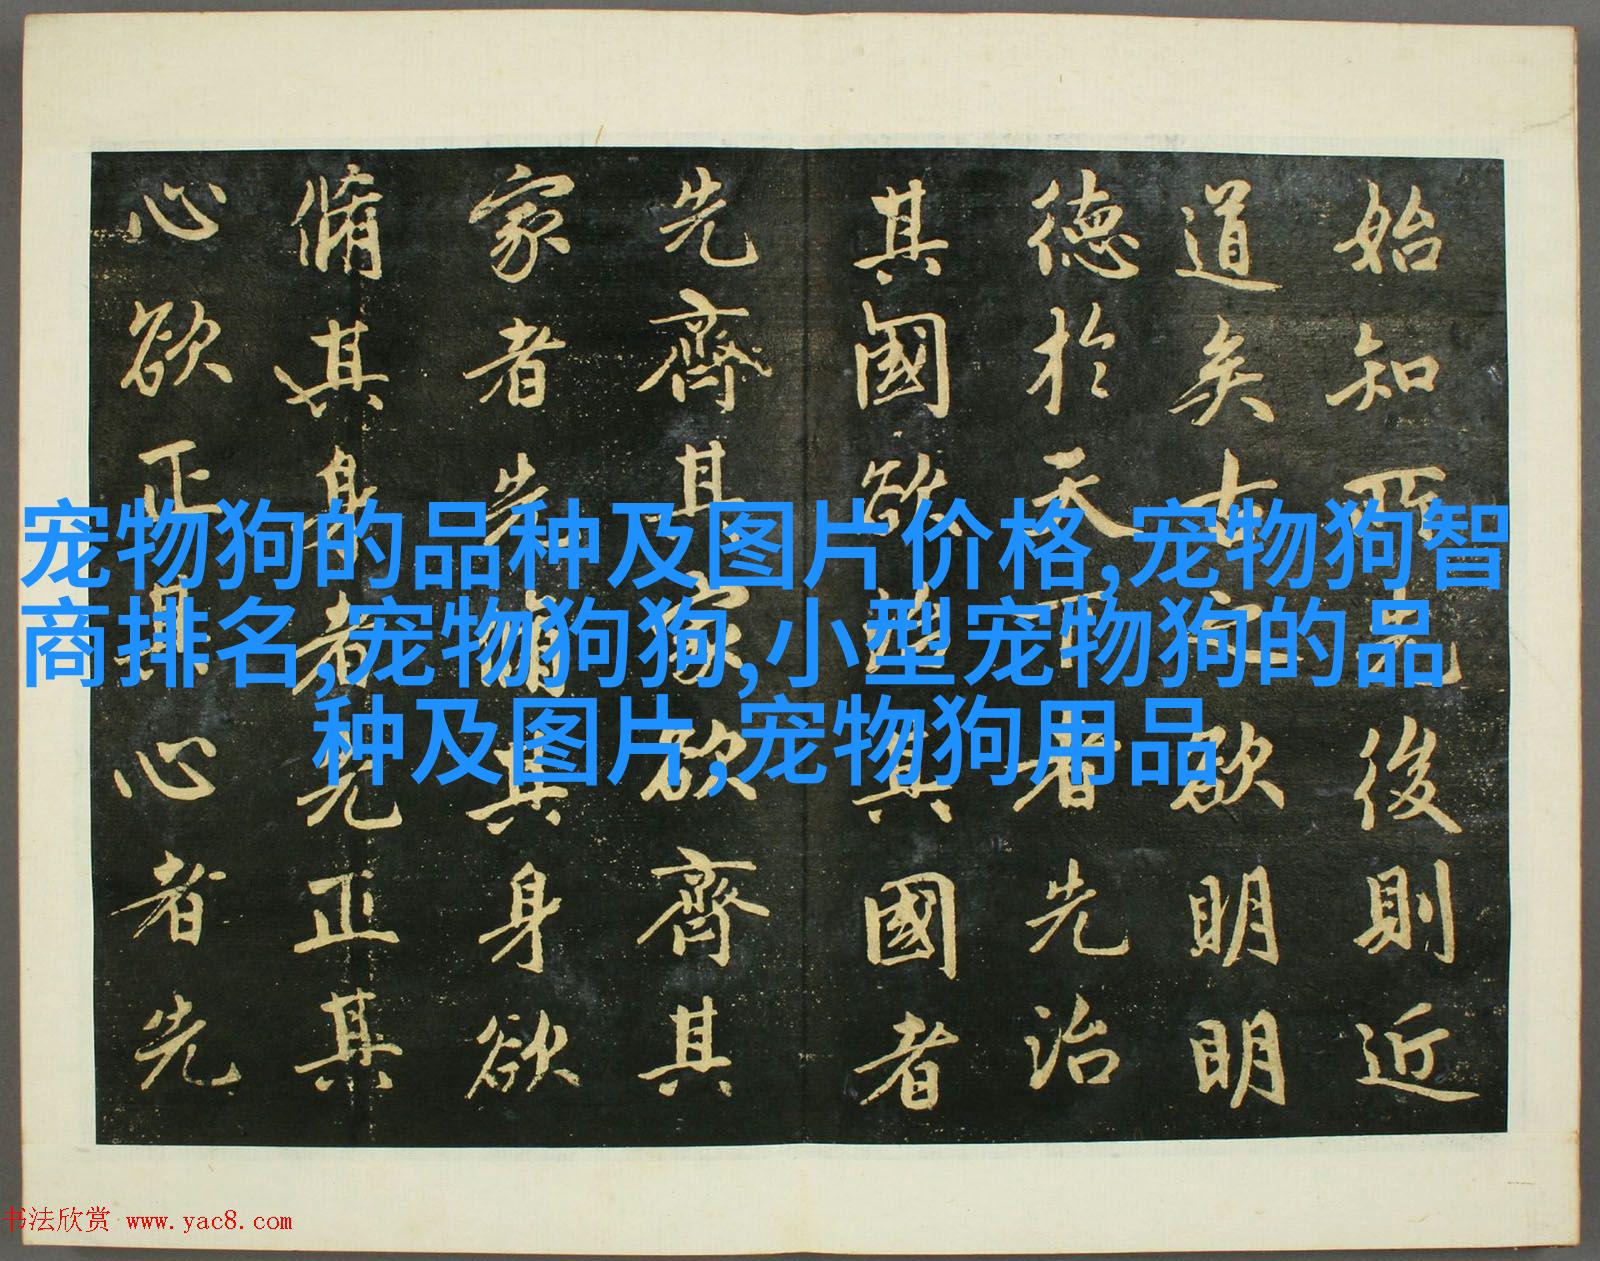 始知所先後則近
道矣古之欲明明
德於天下者先治
其國欲治其國者
先齊其家欲齊其
家者先脩其身欲
脩其身者先正其
心欲正其心者先
宠物狗的品种及图片价格,宠物狗智
商排名,宠物狗狗,小型宠物狗的品
种及图片,宠物狗用品
书法欣赏 www.yac8.com